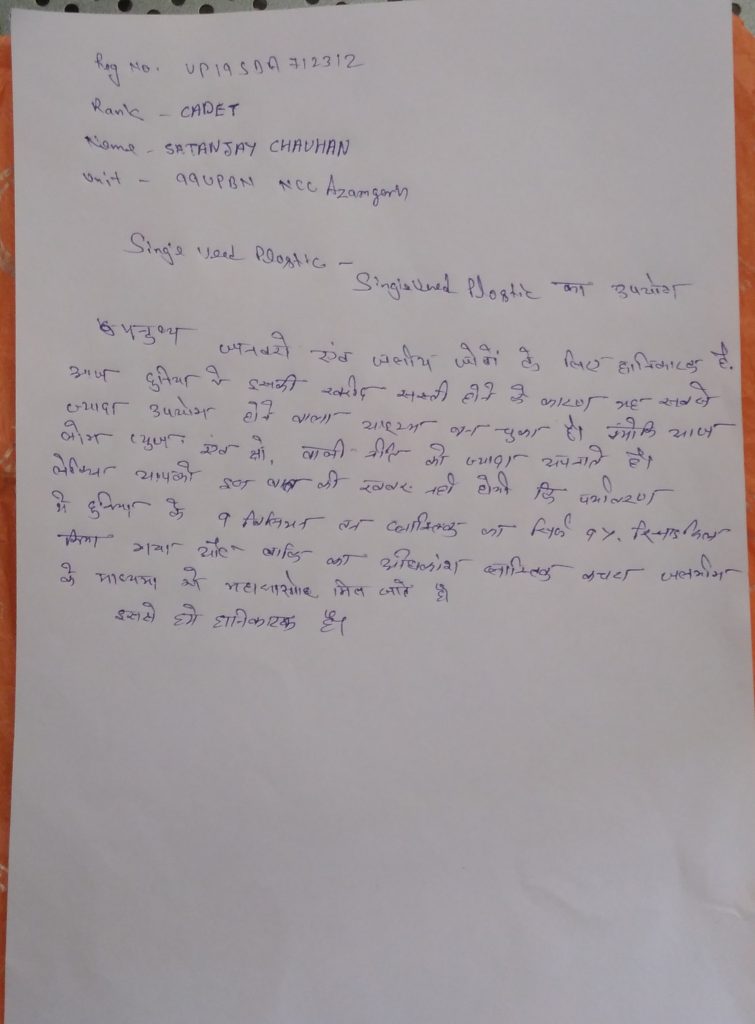 Reg No. UP19SDA712312
Rank - CADET
Name - SATANJAY CHAUHAN
Unit - 99UPBN NCC Azamgarh
Single Used Plastic -
Single Used Plastic का उपयोग
मनुष्य जानवरो एंव जलीय जीवों के लिए हानिकारक है.
आज दुनिया मे इसकी खरीद सस्ती होने के कारण यह सबसे
ज्यादा उपयोग होने वाला माध्यम बन चुका है। क्योकि आज
लोग एंव थ्रो, वाली नीति को ज्यादा अपनाते है।
लेकिन आपको इस बात की खबर नही होगी कि पर्यावरण
मे दुनिया के 9 बिलियन टन प्लास्टिक का सिर्फ 9%. रिसाइकिल
किया गया और बाकि का अधिकांश प्लास्टिक कचरा जलमार्ग
के माध्यम से महासागर मिल जाते है
इससे हमे हानिकारक है।